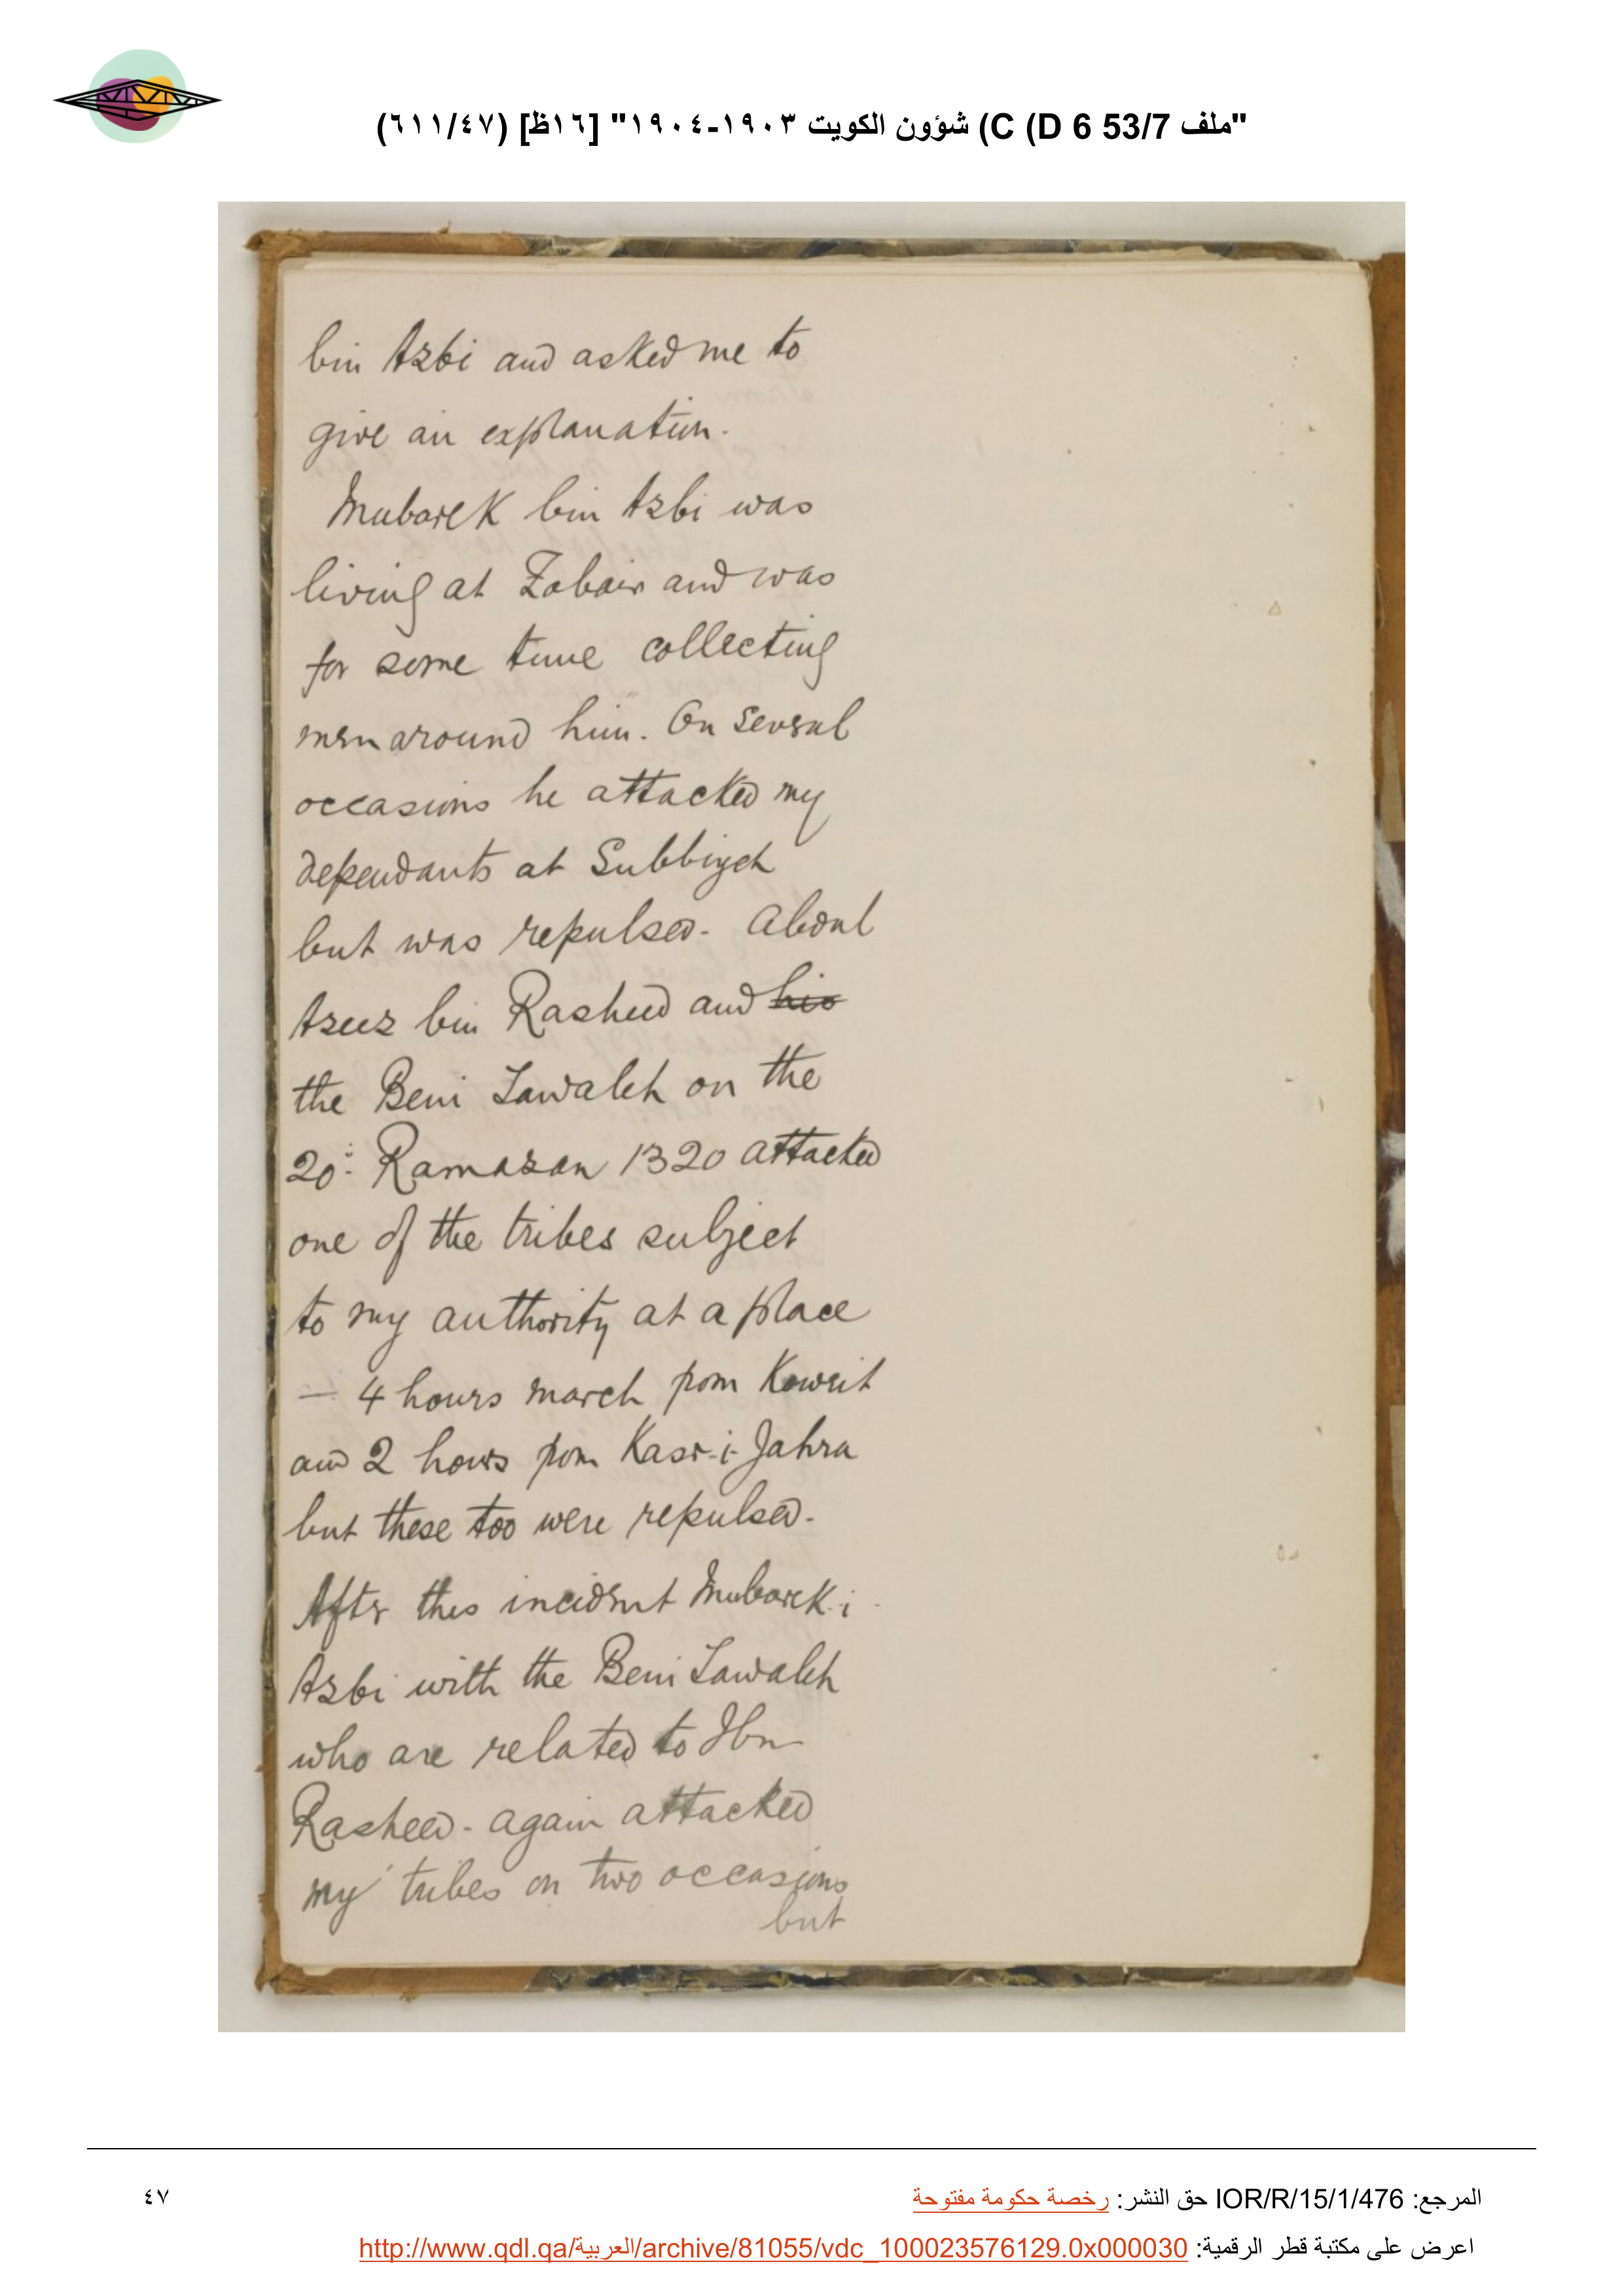 "ملف 53/7 C (D 6) شؤون الكويت ١٩٠٣-١٩٠٤" [١٦ظ] (٦١١/٤٧)
bin Azbi and asked me to
give an explanation.
Mubarek bin Azbi was
living at Zobair and was
for some time collecting
men around him. On several
occasions he attacked my
dependants at Subbiyeh
but was repulsed. Abdul
Azeez bin Rasheed and his
the Beni Tawaleh on the
20: Ramazan 1320 attacked
one of the tribes subject
to my authority at a place
— 4 hours march from Koweit
and 2 hours from Kasr-i-Jahra
but these too were repulsed.
After this incident Mubarek-i-
Azbi with the Beni Tawaleh
who are related to Ibn
Rasheed - again attacked
my tribes on two occasions
but
المرجع: IOR/R/15/1/476 حق النشر: رخصة حكومة مفتوحة
٤٧
اعرض على مكتبة قطر الرقمية: http://www.qdl.qa/العربية/archive/81055/vdc_100023576129.0x000030